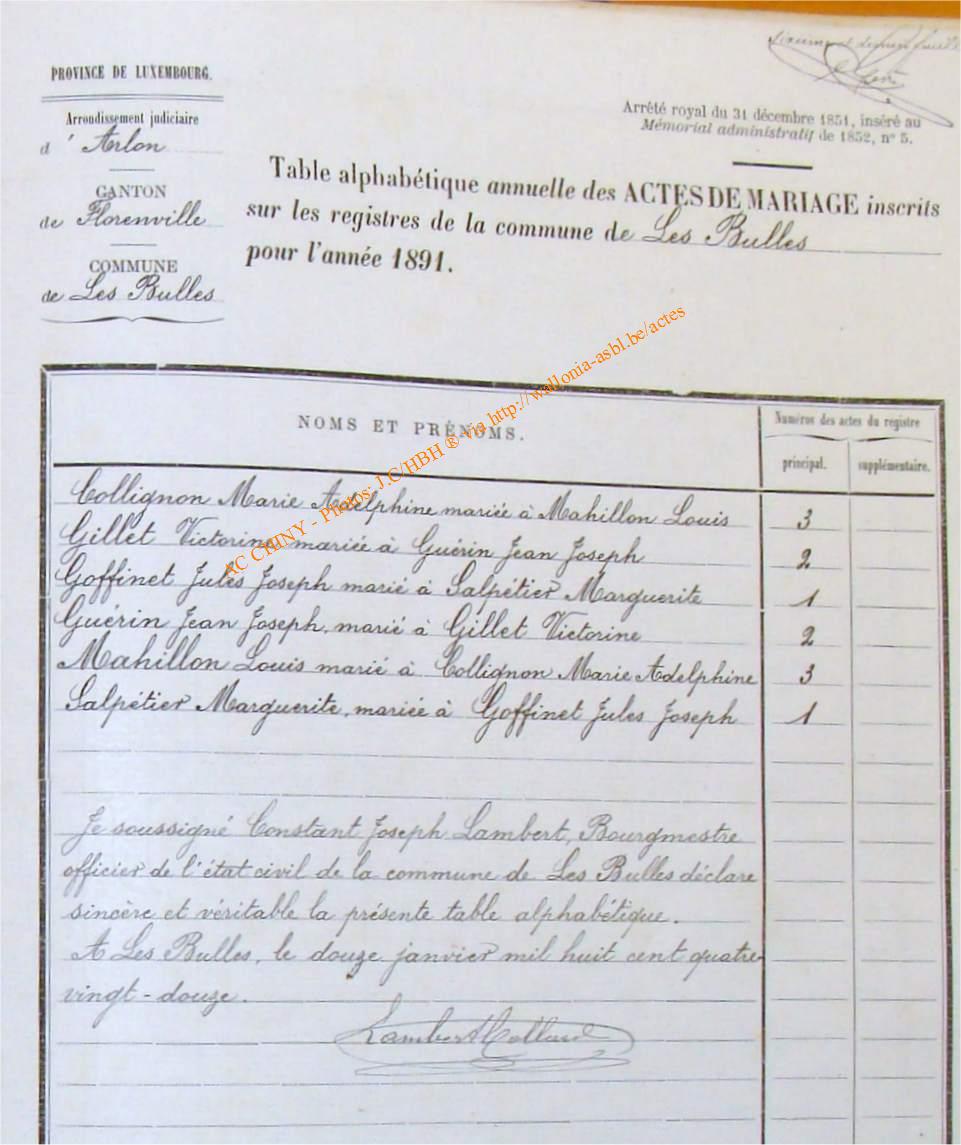 Sixième et dernier feuille
PROVINCE DE LUXEMBOURG.
Arrondissement judiciaire
d'Arlon
CANTON
de Florenville
COMMUNE
de Les Bulles
Arrêté royal du 31 décembre 1851, inséré au
Mémorial administratif de 1852, n° 5.
Table alphabétique annuelle des ACTES DE MARIAGE inscrits
sur les registres de la commune de Les Bulles
pour l'année 1891.
NOMS ET PRÉNOMS.
Numéros des actes du registre
principal. supplémentaire.
Collignon Marie Adelphine mariée à Mahillon Louis 3
Gillet Victorine mariée à Guérin Jean Joseph 2
Goffinet Jules Joseph marié à Salpétier Marguerite 1
Guérin Jean Joseph, marié à Gillet Victorine 2
Mahillon Louis marié à Collignon Marie Adelphine 3
Salpétier Marguerite, mariée à Goffinet Jules Joseph 1
Je soussigné Constant Joseph Lambert, Bourgmestre
officier de l'état civil de la commune de Les Bulles déclare
sincère et véritable la présente table alphabétique.
A Les Bulles, le douze janvier mil huit cent quatre
vingt-douze.
Lambert Collard
AC CHINY - Photos: J.C/HBH ® via http://wallonia-asbl.be/actes